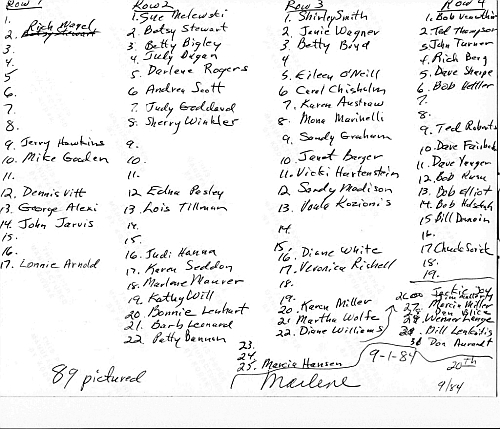 Row 1
Rich Nagel
2. Betsy Stewart
3.
4.
5
6.
7.
8.
9. Jerry Hawkins
10. Mike Gooden
11.
12. Dennis Vitt
13. George Alexi
14. John Jarvis
15.
16.
17. Lonnie Arnold
Row 2
1. Sue Melewski
2. Betsy Stewart
3. Betty Bigley
4. Judy Dugan
5. Darlene Rogers
6. Andrea Scott
7. Judy Goddard
8. Sherry Winkler
9.
10.
11.
12 Edna Pasley
13. Lois Tillman
14.
15.
16. Judi Hanna
17. Karen Seddon
18. Marlene Maurer
19. Kathy Will
20. Bonnie Lenhart
21. Barb Leonard
22. Patty Dannun
Row 3
1. Shirley Smith
2. Janie Wagner
3. Betty Boyd
4
5. Eileen O'Neill
6 Carol Chisholm
7. Karen Austraw
8. Mona Marinelli
9. Sandy Graham
10. Janet Berger
11. Vicki Hartenstein
12. Sandy Madison
13. Voula Kozionis
14.
15.
16. Diane White
17. Veronica Richell
18.
19.
20. Karen Miller
21 Martha Wolte
22. Diane Williams
23.
24.
25. Marcia Hansen
Row 4
1. Bob
2. Ted Thompson
3. John Turner
4. Rich Berg
5. Dave Sharpe
6. Bob Keller
7.
8.
9. Ted Roberts
10. Dave
11. Dave Yenger
12. Bob
13. Bob Elliot
14. Bob
15 Bill
16.
17 Chuck Sorick
18.
19.
26. Jackie Joy
27. Marcia Miller
Dan Slick
28. Werner Lange
29. Bill
30 Don Aurandt
89 pictured
Marlene
9-1-84
20th
9/84